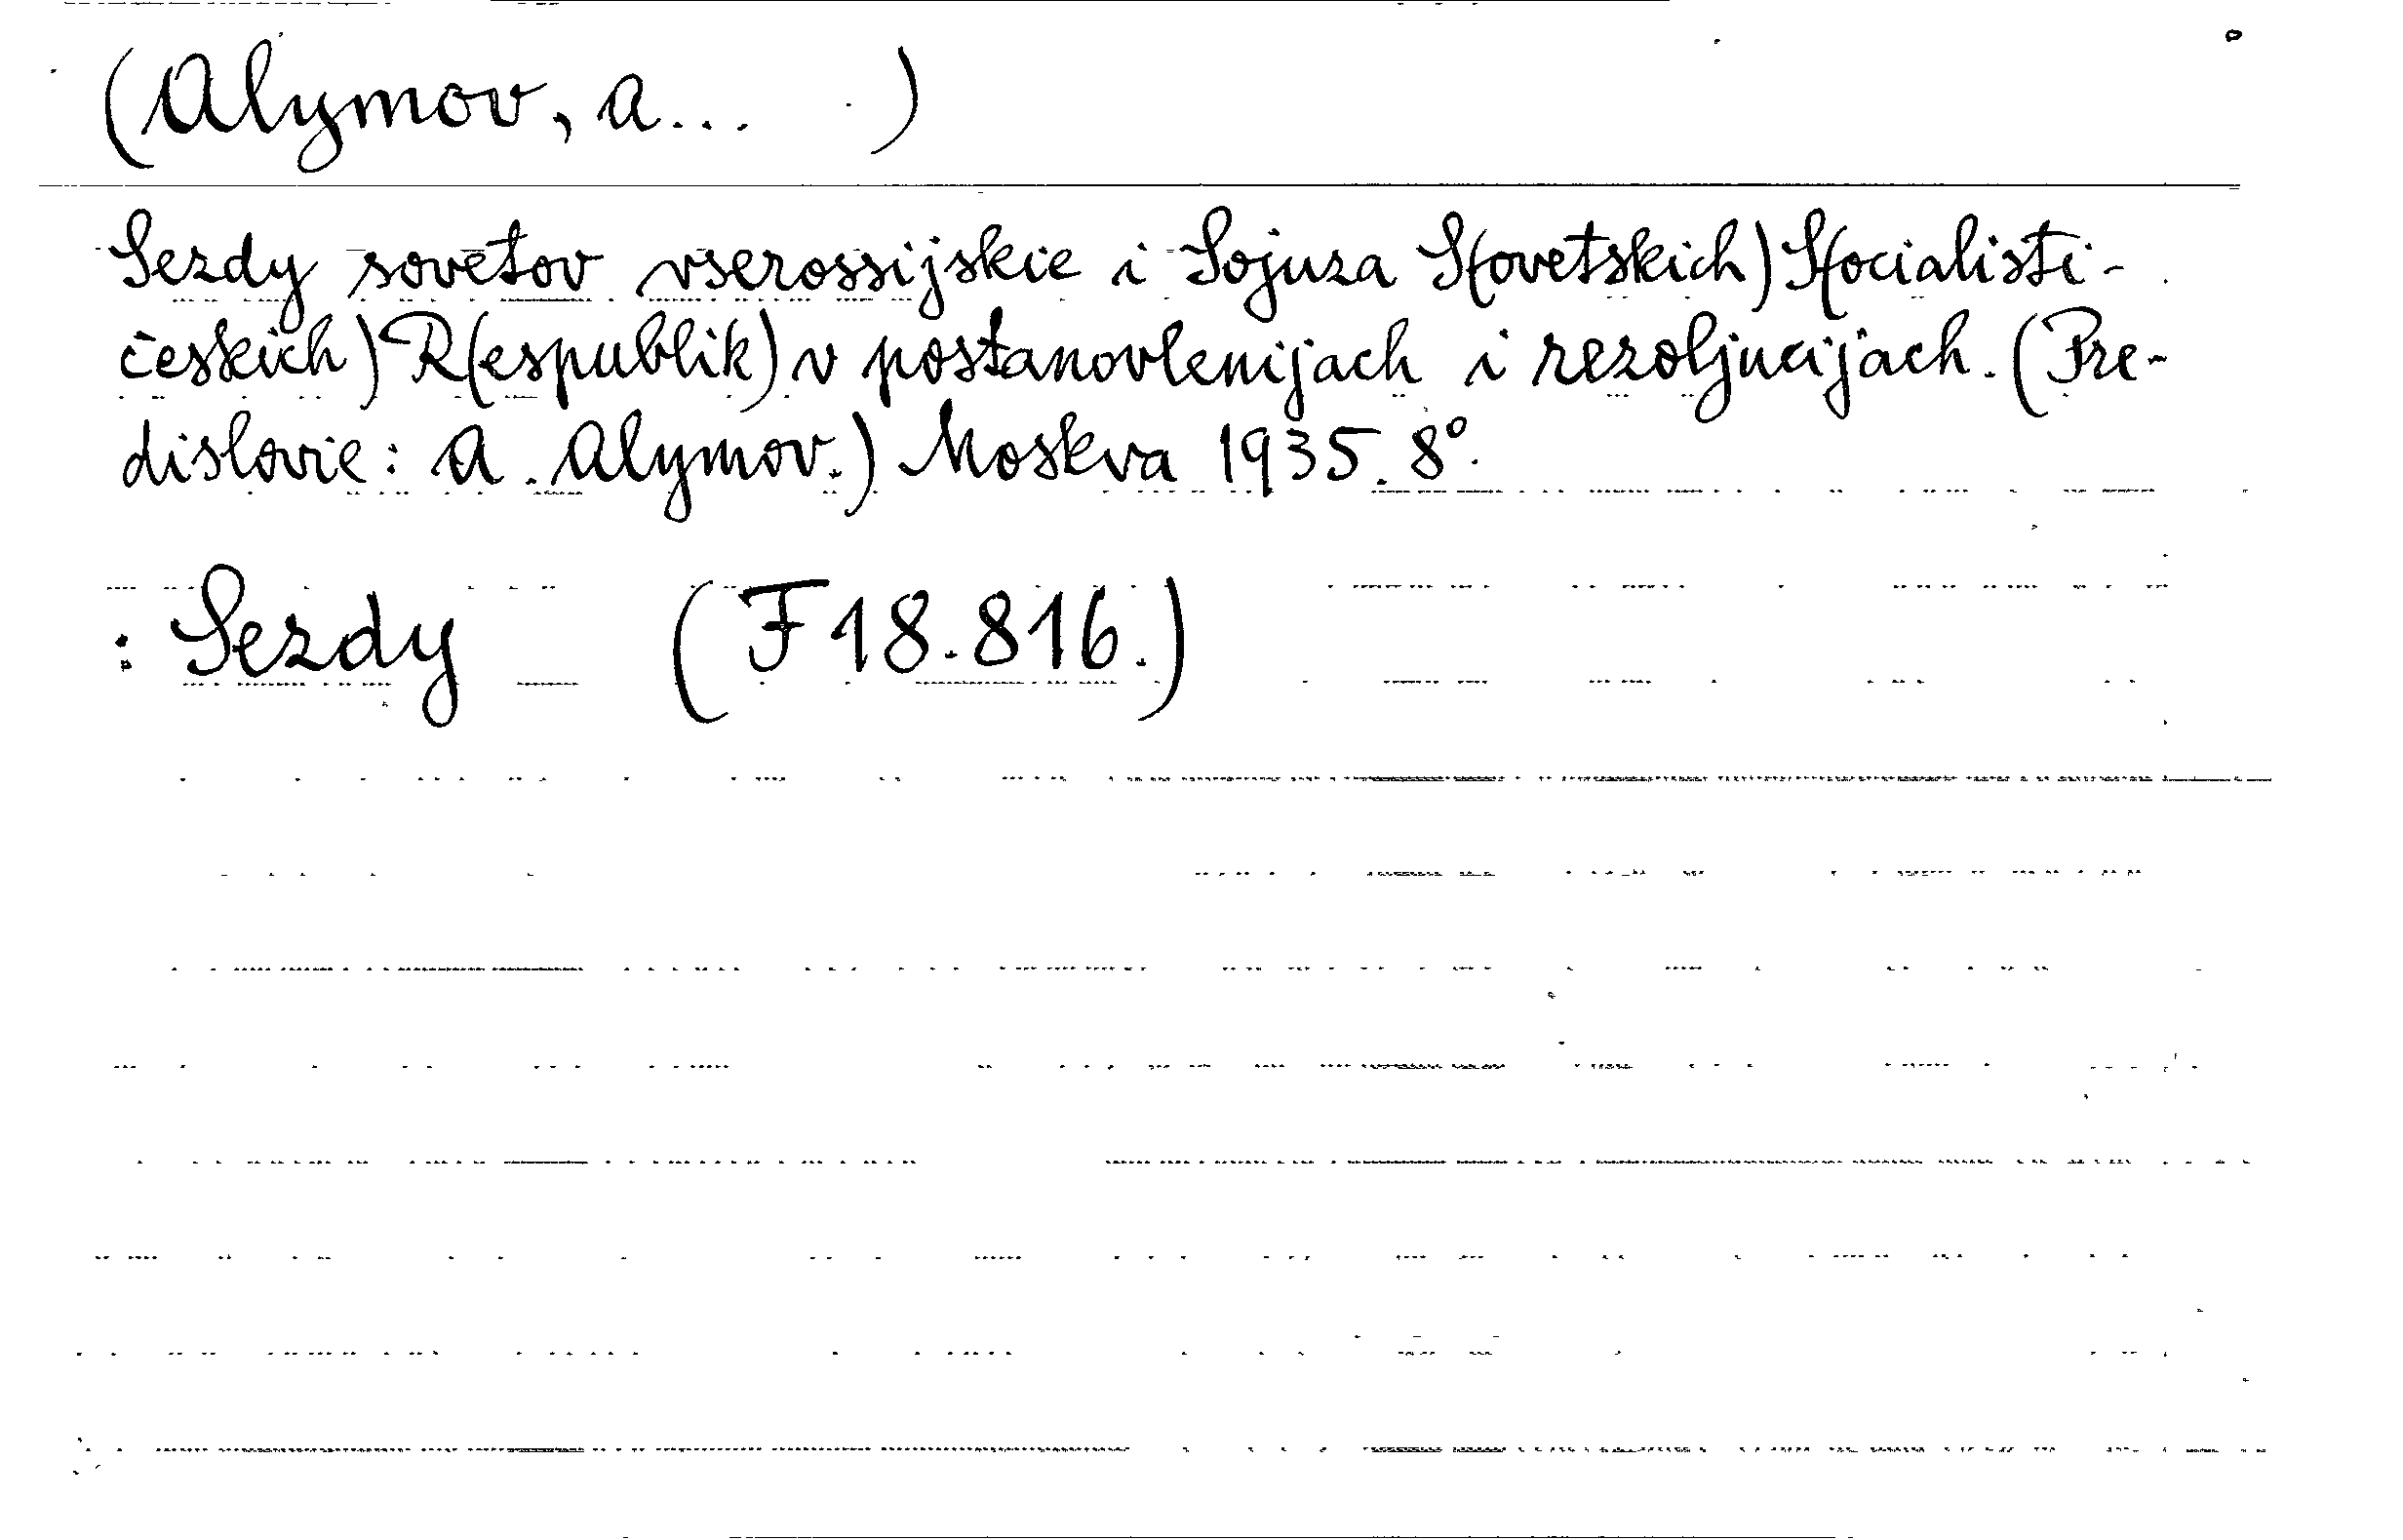 (Alymov, A... )
Sezdy sovetov vserossijskie i Sojuza S(ovetskich) S(ocialisti-
českich) R(espublik) v postanovlenijach i rezoljucijach. (Pre-
dislovie: A. Alymov.) Moskva 1935. 8°.
: Sezdy (F 18.816.)